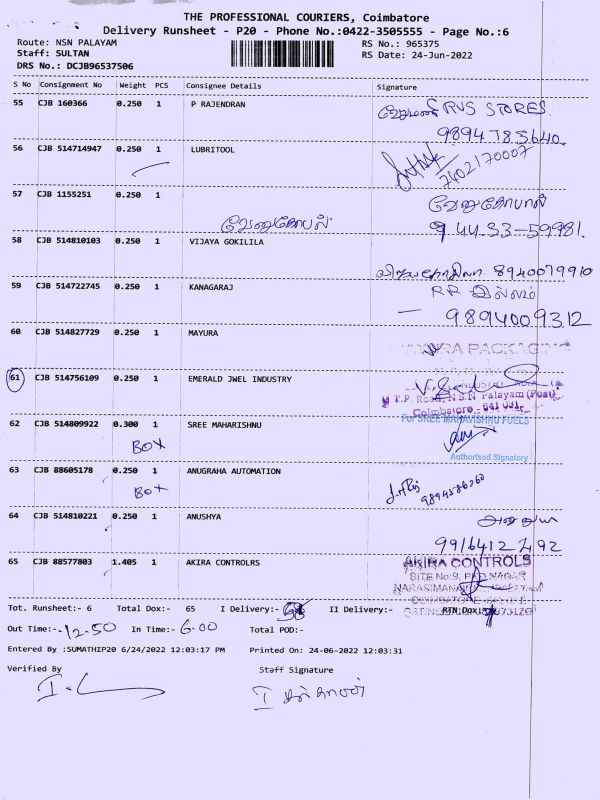 THE PROFESSIONAL COURIERS, Coimbatore
Delivery Runsheet - P20 - Phone No.:0422-3505555 - Page No.:6
Route: NSN PALAYAM RS No.: 965375
Staff: SULTAN RS Date: 24-Jun-2022
DRS No.: DCJB96537506
S No Consignment No Weight PCS Consignee Details Signature
55 CJB 160366 0.250 1 P RAJENDRAN RVS STORES
9894785640.
56 CJB 514714947 0.250 1 LUBRITOOL
7402170007
57 CJB 1155251 0.250 1 வேணுகோபால்
வேணுகோபல் 944.33-59981.
58 CJB 514810103 0.250 1 VIJAYA GOKILILA
8940079910
59 CJB 514722745 0.250 1 KANAGARAJ RR இல்லம்
9894009312
60 CJB 514827729 0.250 1 MAYURA
PACKAGING
61 CJB 514756109 0.250 1 EMERALD JWEL INDUSTRY
T.P. Road, N.S.N. Palayam (Post)
Coimbatore - 641 031.
62 CJB 514809922 0.300 1 SREE MAHARISHNU For SREE MAHAVISHNU FUELS
BOX
Authorised Signatory
63 CJB 88605178 0.250 1 ANUGRAHA AUTOMATION
BOX 9894586260
64 CJB 514810221 0.250 1 ANUSHYA
9916412492
65 CJB 88577803 1.405 1 AKIRA CONTROLRS AKIRA CONTROLS
SITE No:9,
Tot. Runsheet:- 6 Total Dox:- 65 I Delivery:- II Delivery:- RTN Dox:-
Out Time:- 12.50 In Time:- 6.00 Total POD:-
Entered By :SUMATHIP20 6/24/2022 12:03:17 PM Printed On: 24-06-2022 12:03:31
Verified By Staff Signature